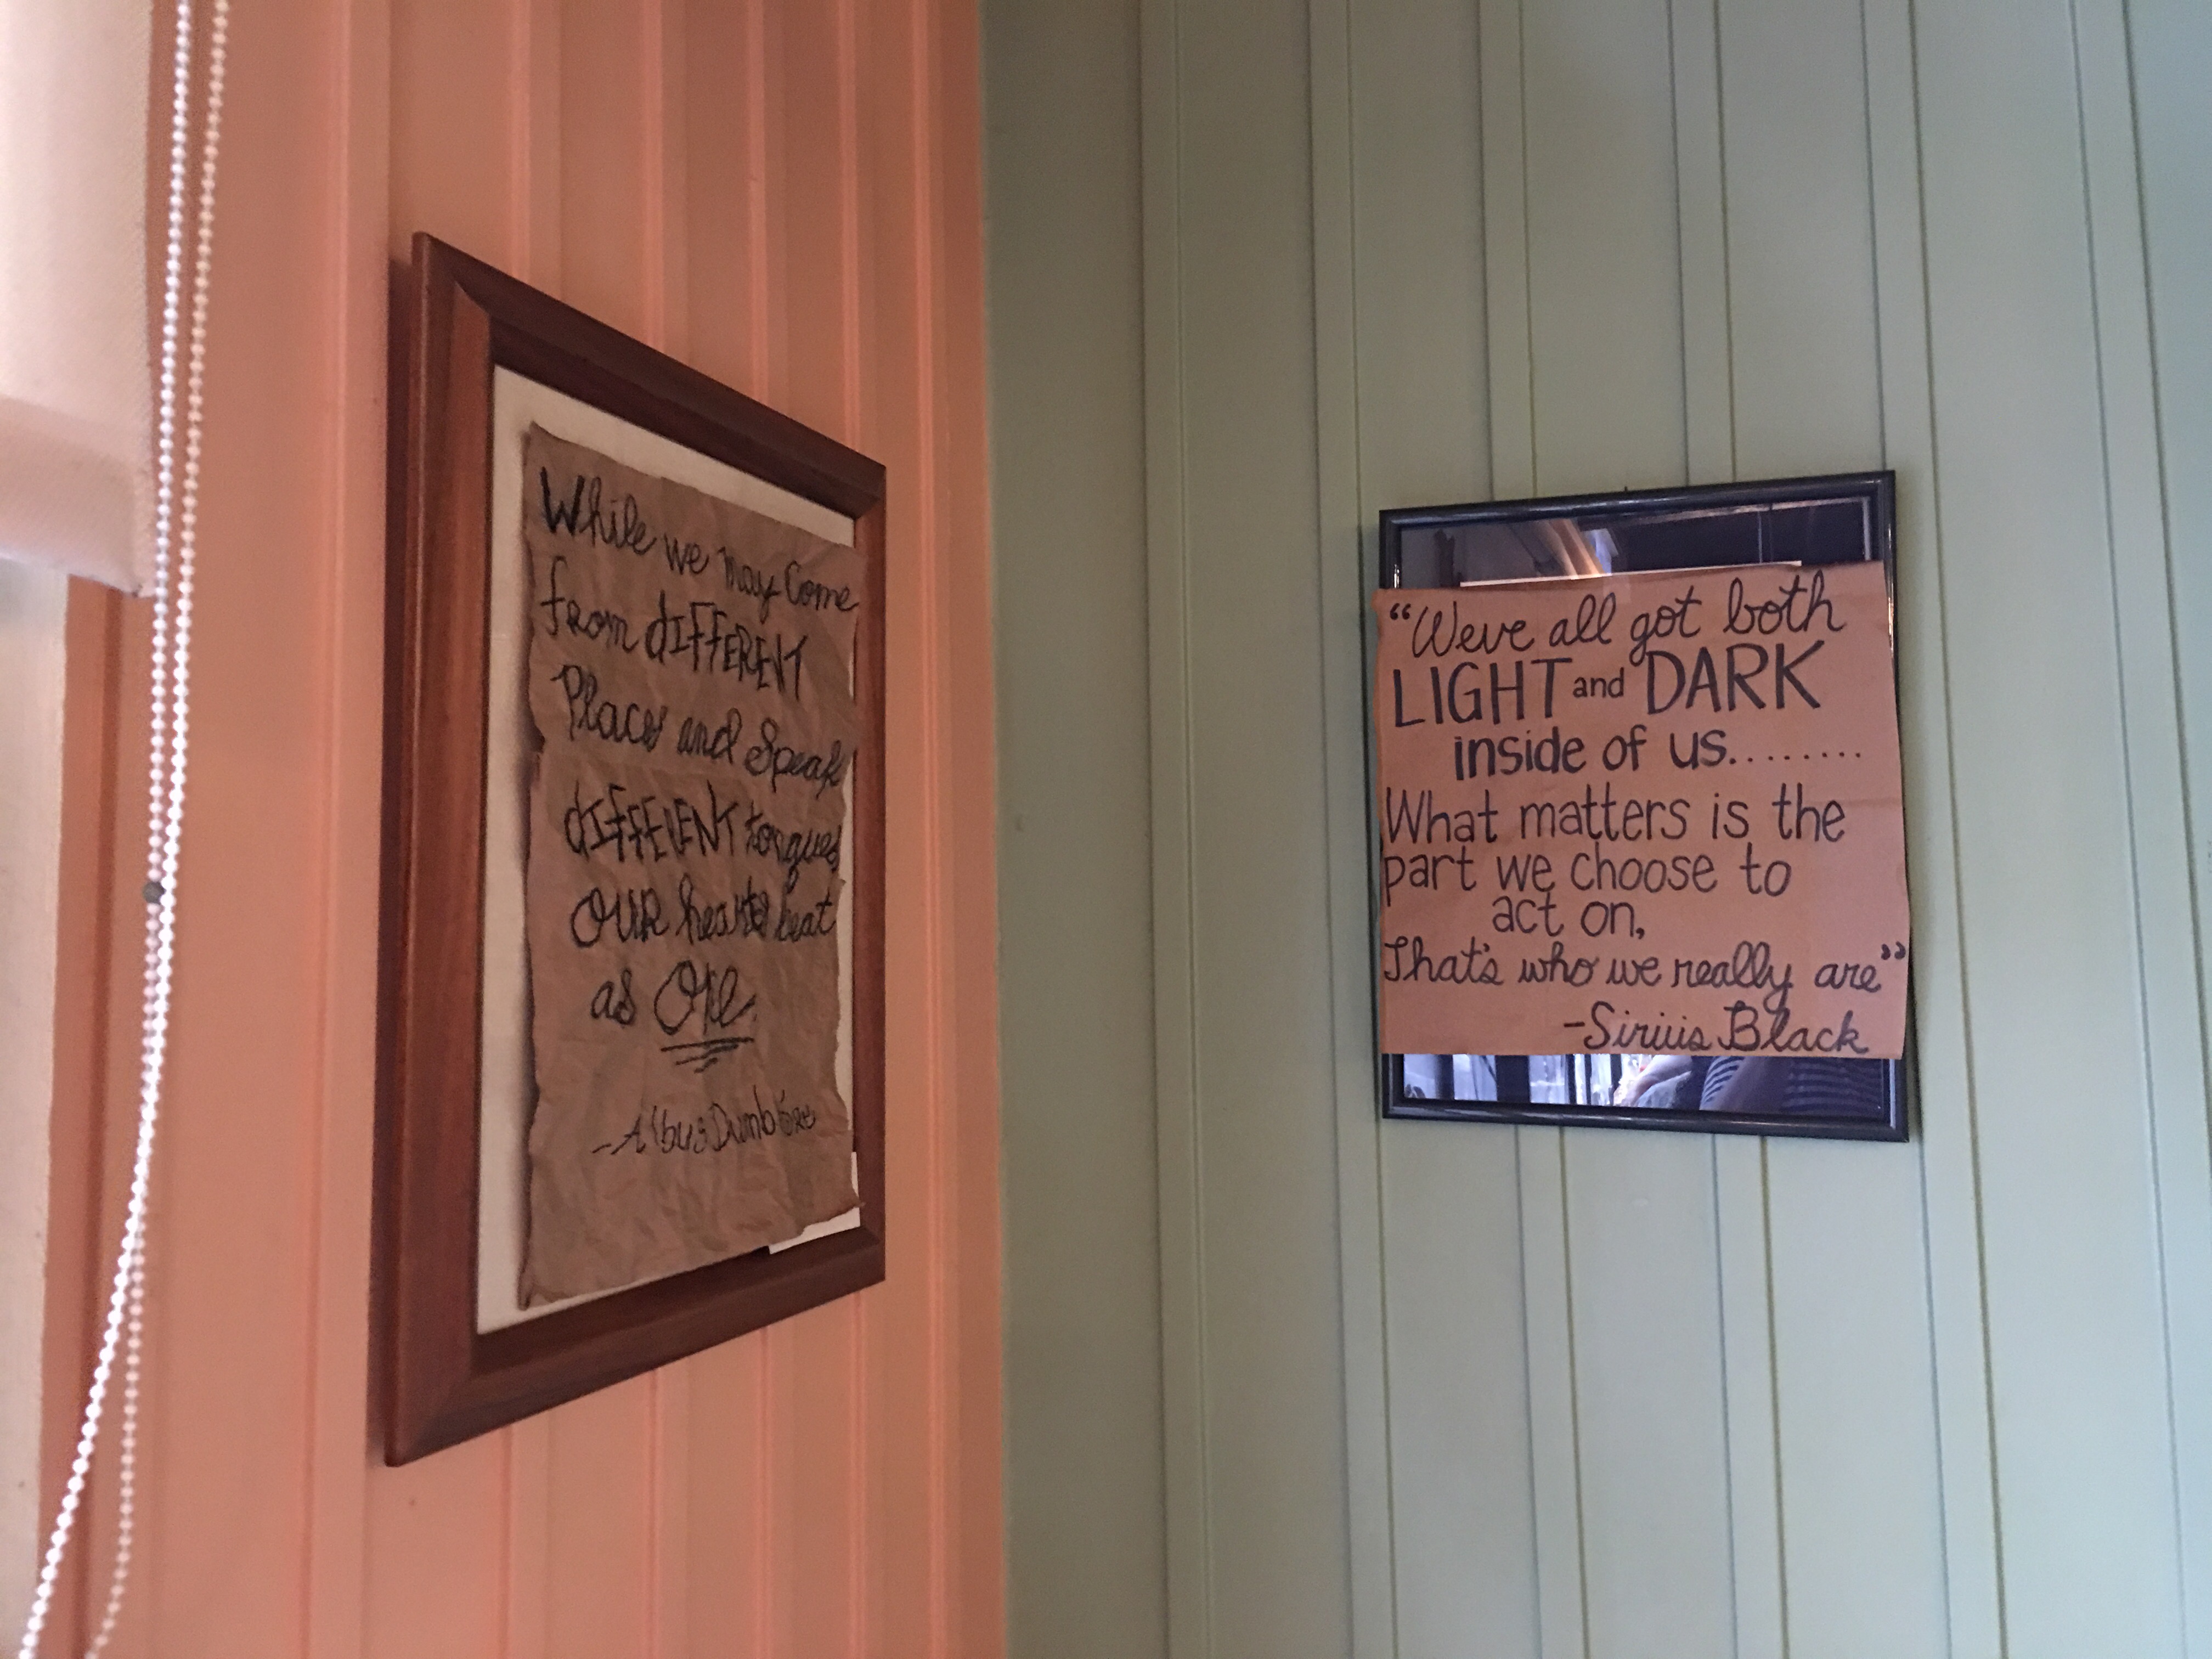 While we may Come
from dIFFERENT
Places and Speak
dIFFERENT tongues
OUR hearts beat
as One.
-Albus Dumbledore
“Weve all got both
LIGHT and DARK
inside of us........
What matters is the
part we choose to
act on,
That's who we really are”
-Sirius Black